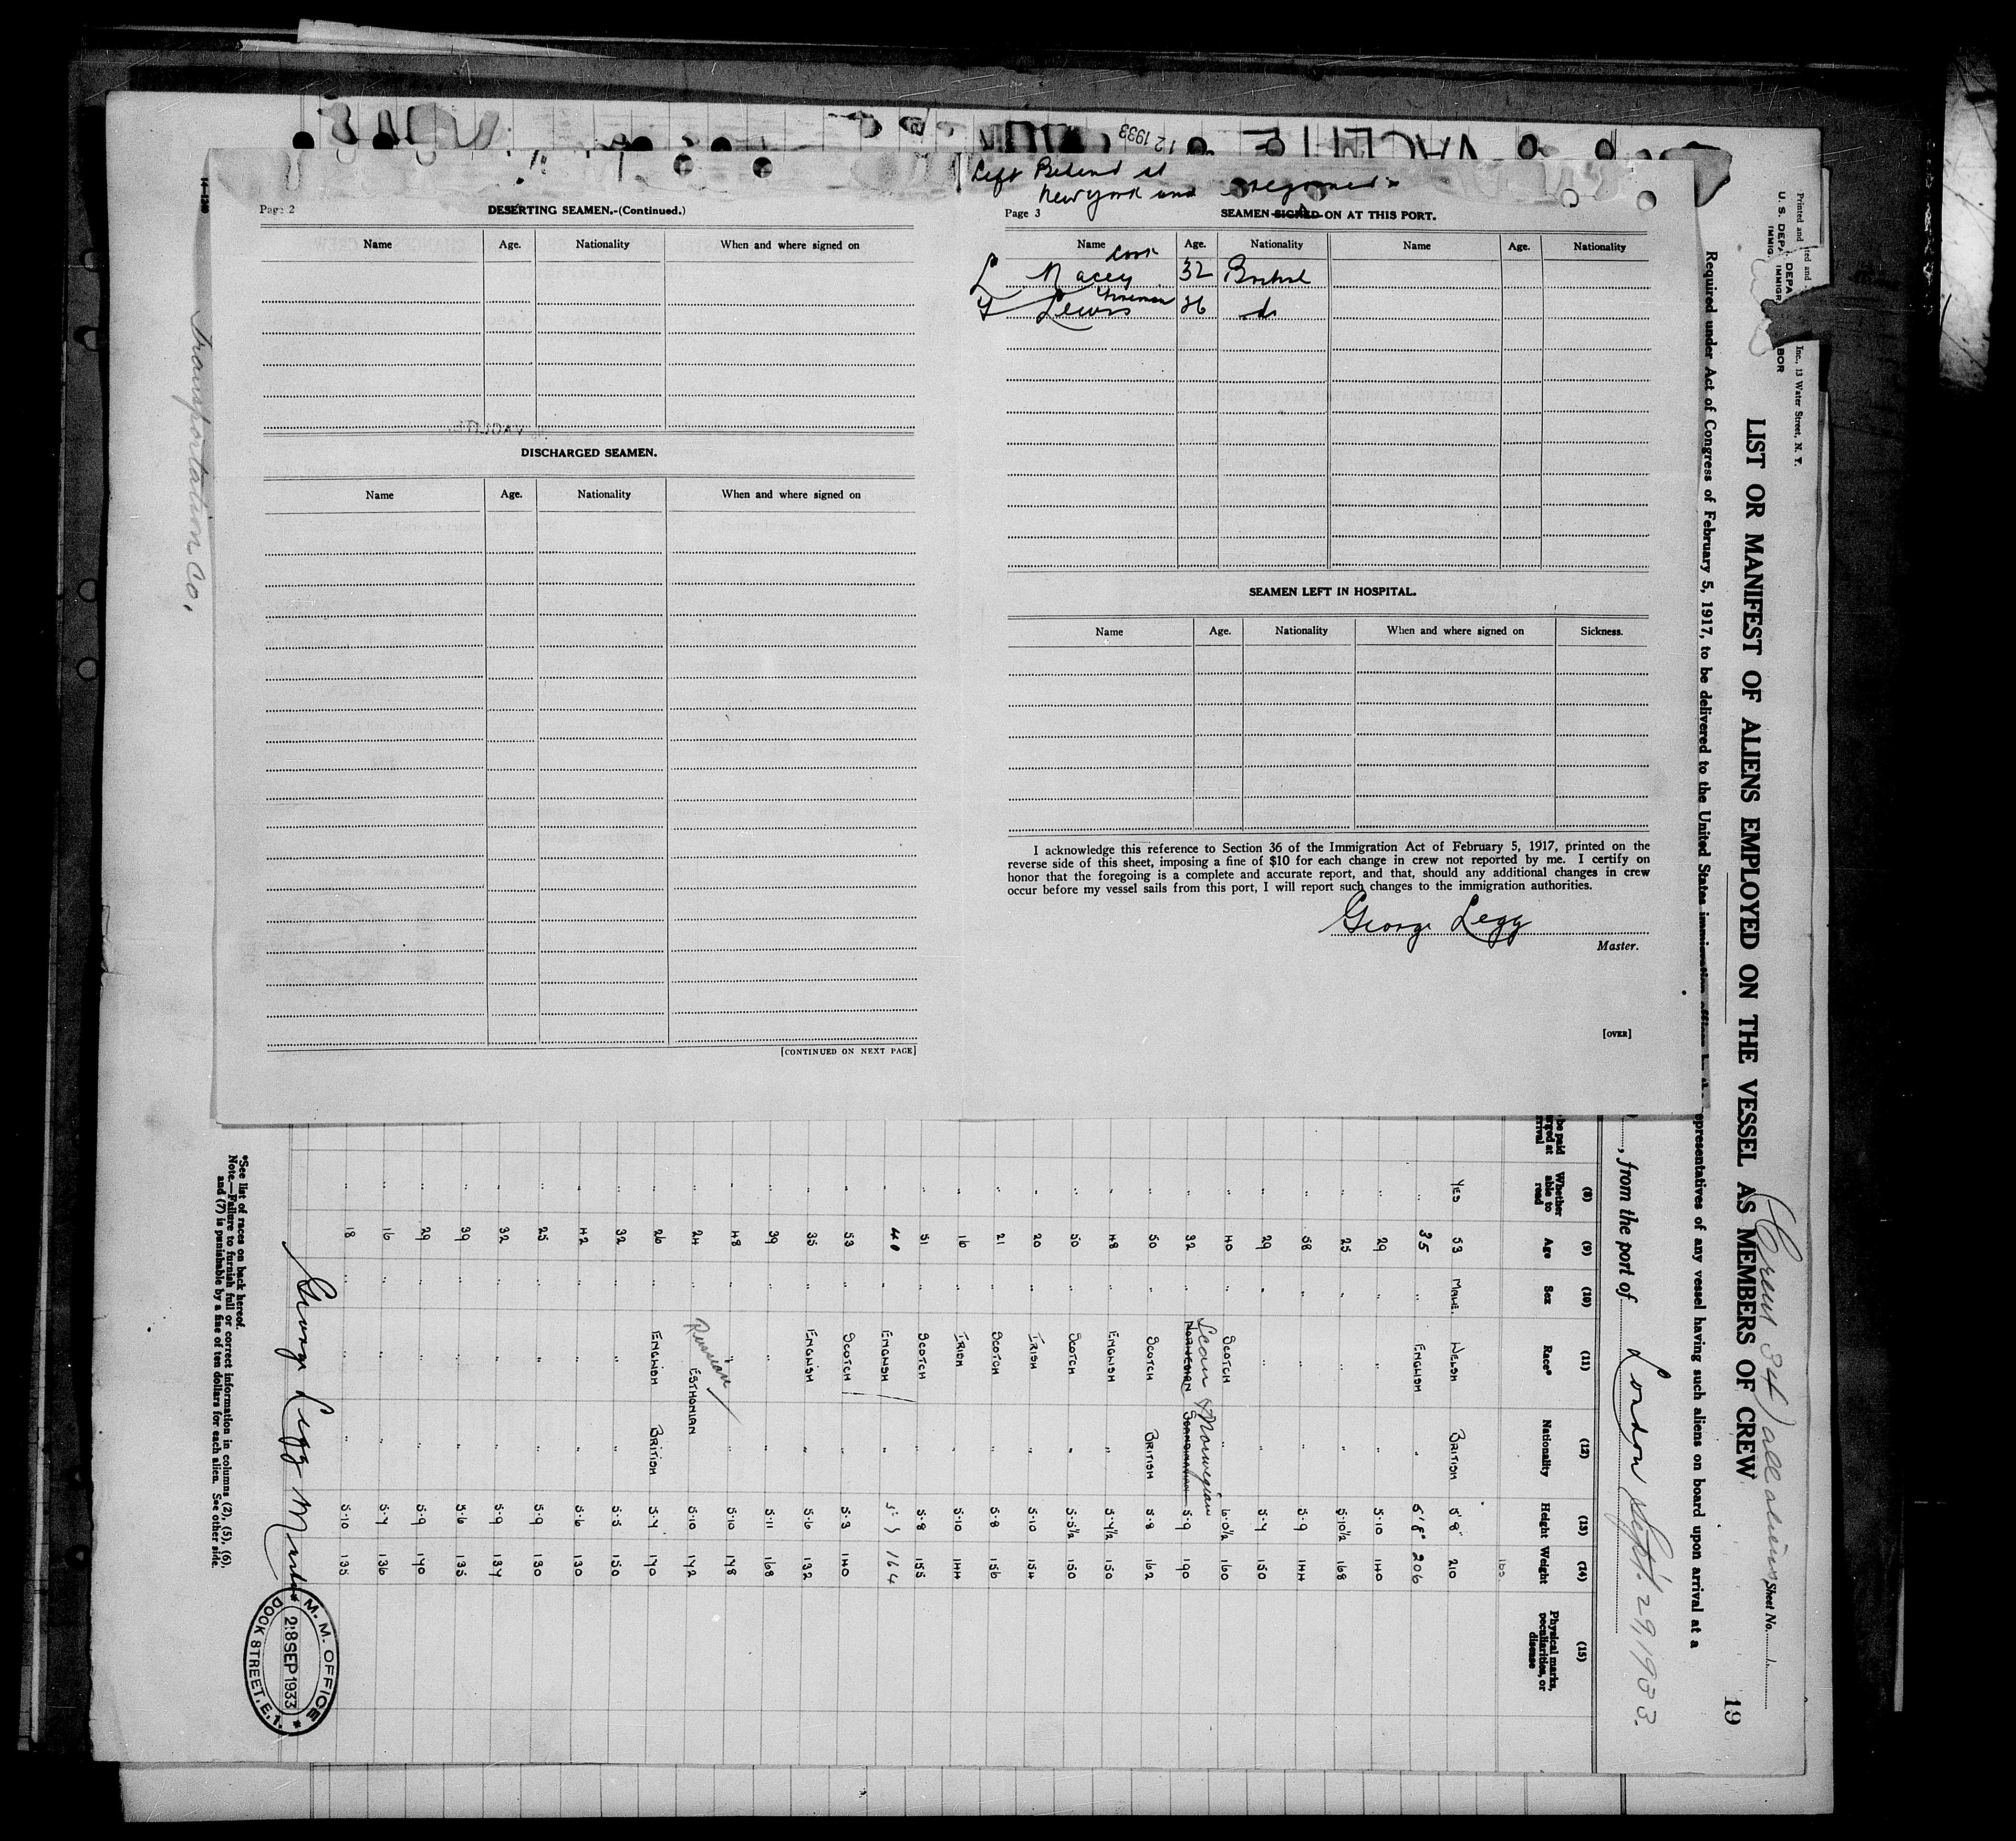 12 1933
Left Behind at
New York and rejoined
14-1240
Page 2
DESERTING SEAMEN.-(Continued.)
Name Age. Nationality When and where signed on
DISCHARGED SEAMEN.
Name Age. Nationality When and where signed on
[CONTINUED ON NEXT PAGE]
Page 3
SEAMEN SIGNED ON AT THIS PORT.
Name Age. Nationality Name Age. Nationality
Cook
L Nacey 32 British
Fireman
T Lewis 26 do
SEAMEN LEFT IN HOSPITAL.
Name Age. Nationality When and where signed on Sickness.
I acknowledge this reference to Section 36 of the Immigration Act of February 5, 1917, printed on the
reverse side of this sheet, imposing a fine of $10 for each change in crew not reported by me. I certify on
honor that the foregoing is a complete and accurate report, and that, should any additional changes in crew
occur before my vessel sails from this port, I will report such changes to the immigration authorities.
George Legg
Master.
[OVER]
Transportation Co.
Printed and
Inc., 13 Water Street, N. Y.
U. S. DEPA
IMMIG
(Crew 34) all aliens Sheet No. 1
19
LIST OR MANIFEST OF ALIENS EMPLOYED ON THE VESSEL AS MEMBERS OF CREW
Required under Act of Congress of February 5, 1917, to be delivered to the United States immigration representatives of any vessel having such aliens on board upon arrival at a
, from the port of London Sept. 29, 1933.
(8) (9) (10) (11) (12) (13) (14) (15)
Whether able to read Age Sex Race* Nationality Height Weight Physical marks, peculiarities, or disease
lbs.
YES 53 MALE. WELSH BRITISH 5'8" 210
" 35 " ENGLISH " 5'8" 206
" 29 " " " 5-10 140
" 25 " " " 5-10½ 168
" 58 " " " 5-9 144
" 29 " " " 5-4 150
" 40 " SCOTCH " 6-0½ 160
Scan & Norwegian
" 32 " NORWEGIAN SCANDINAVIAN 5-9 190
" 50 " SCOTCH BRITISH 5-8 162
" 48 " ENGLISH " 5-4½ 150
" 50 " SCOTCH " 5-5½ 150
" 20 " IRISH " 5-10 154
" 21 " SCOTCH " 5-8 156
" 16 " IRISH " 5-10 144
" 51 " SCOTCH " 5-8 155
" 40 " ENGLISH " 164
" 53 " SCOTCH " 5-3 140
" 35 " ENGLISH " 5-6 132
" 39 " " " 5-11 168
" 48 " " " 5-10 148
Russian
" 24 " ESTHONIAN 5-10 142
" 26 " ENGLISH BRITISH 5-4 140
" 32 " " " 5-5 150
" 42 " " " 5-6 130
" 25 " " " 5-9 130
" 32 " " " 5-9 134
" 39 " " " 5-6 135
" 29 " " " 5-9 140
" 16 " " " 5-4 136
" 18 " " " 5-10 135
George Legg Master
M. M. OFFICE
28 SEP 1933
DOCK STREET, E.1.
*See list of races on back hereof.
Note.—Failure to furnish full or correct information in columns (2), (5), (6),
and (7) is punishable by a fine of ten dollars for each alien. See other side.